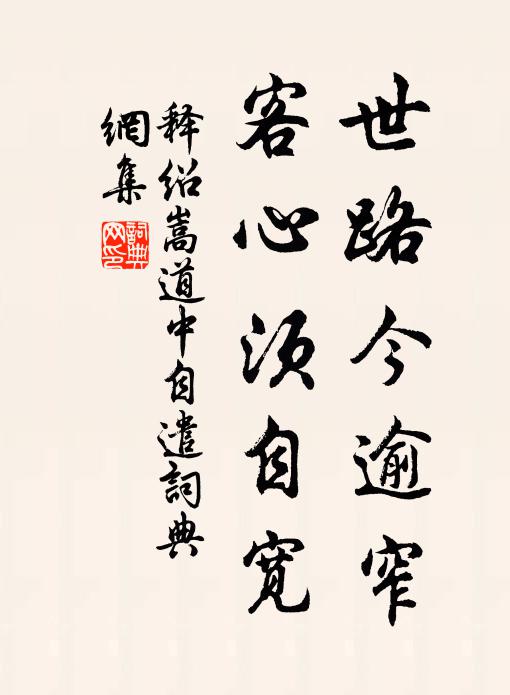 世路今逾窄
客心须自宽
释绍嵩道中自遣词典
網集
詞典網印